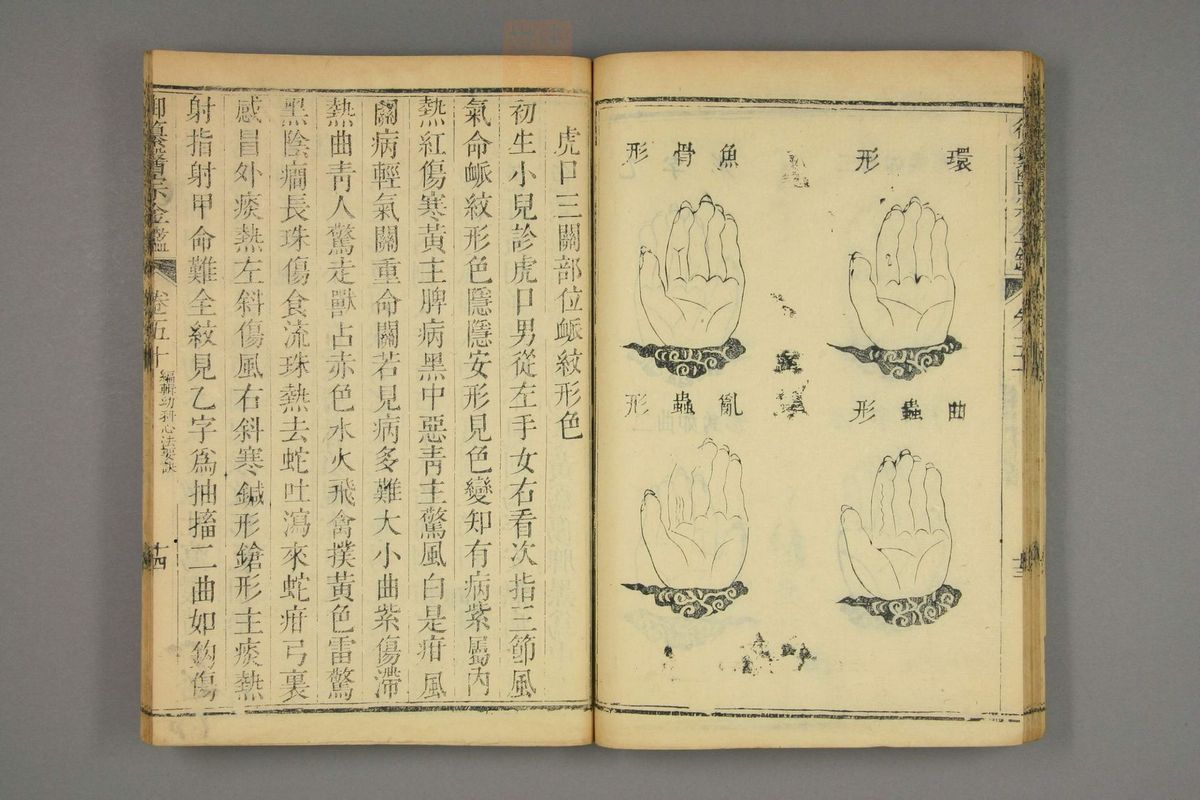 環形
魚骨形
曲蟲形
亂蟲形
虎口三關部位衇紋形色
初生小兒診虎口男從左手女右看次指三節風
氣命衇紋形色隱隱安形見色變知有病紫屬內
熱紅傷寒黃主脾病黑中惡青主驚風白是疳風
關病輕氣關重命關若見病多難大小曲紫傷滯
熱曲青人驚走獸占赤色水火飛禽撲黃色雷驚
黑陰癇長珠傷食流珠熱去蛇吐瀉來蛇疳弓裏
感冒外痰熱左斜傷風右斜寒鍼形鎗形主痰熱
射指射甲命難全紋見乙字爲抽搐二曲如鉤傷
御纂醫宗金鑑 卷五十 編輯幼科心法要訣 十四